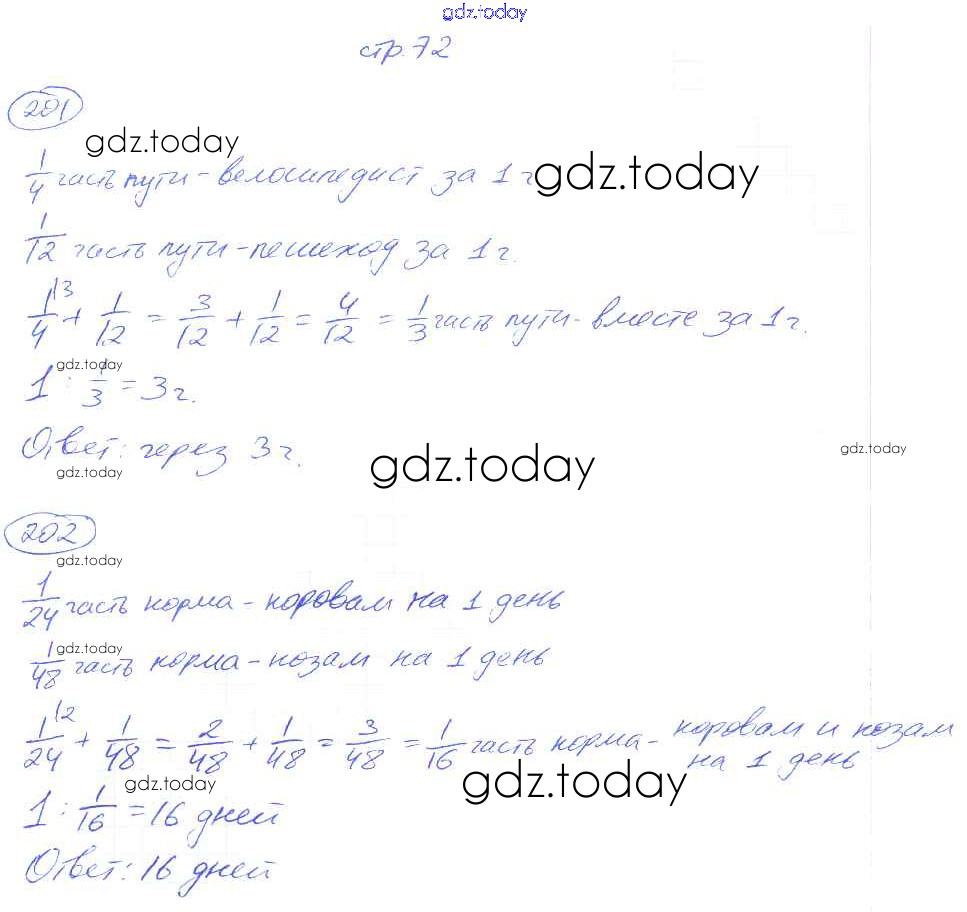 gdz.today
стр. 72
201
gdz.today
1/4 часть пути - велосипедист за 1 ч
gdz.today
1/12 часть пути - пешеход за 1 ч.
1/4 |3 + 1/12 = 3/12 + 1/12 = 4/12 = 1/3 часть пути - вместе за 1 ч.
gdz.today
1 : 1/3 = 3 ч.
Ответ: через 3 ч.
gdz.today
gdz.today
gdz.today
202
gdz.today
1/24 часть корма - коровам на 1 день
gdz.today
1/48 часть корма - козам на 1 день
1/24 |2 + 1/48 = 2/48 + 1/48 = 3/48 = 1/16 часть корма - коровам и козам
на 1 день
gdz.today
gdz.today
1 : 1/16 = 16 дней
Ответ: 16 дней